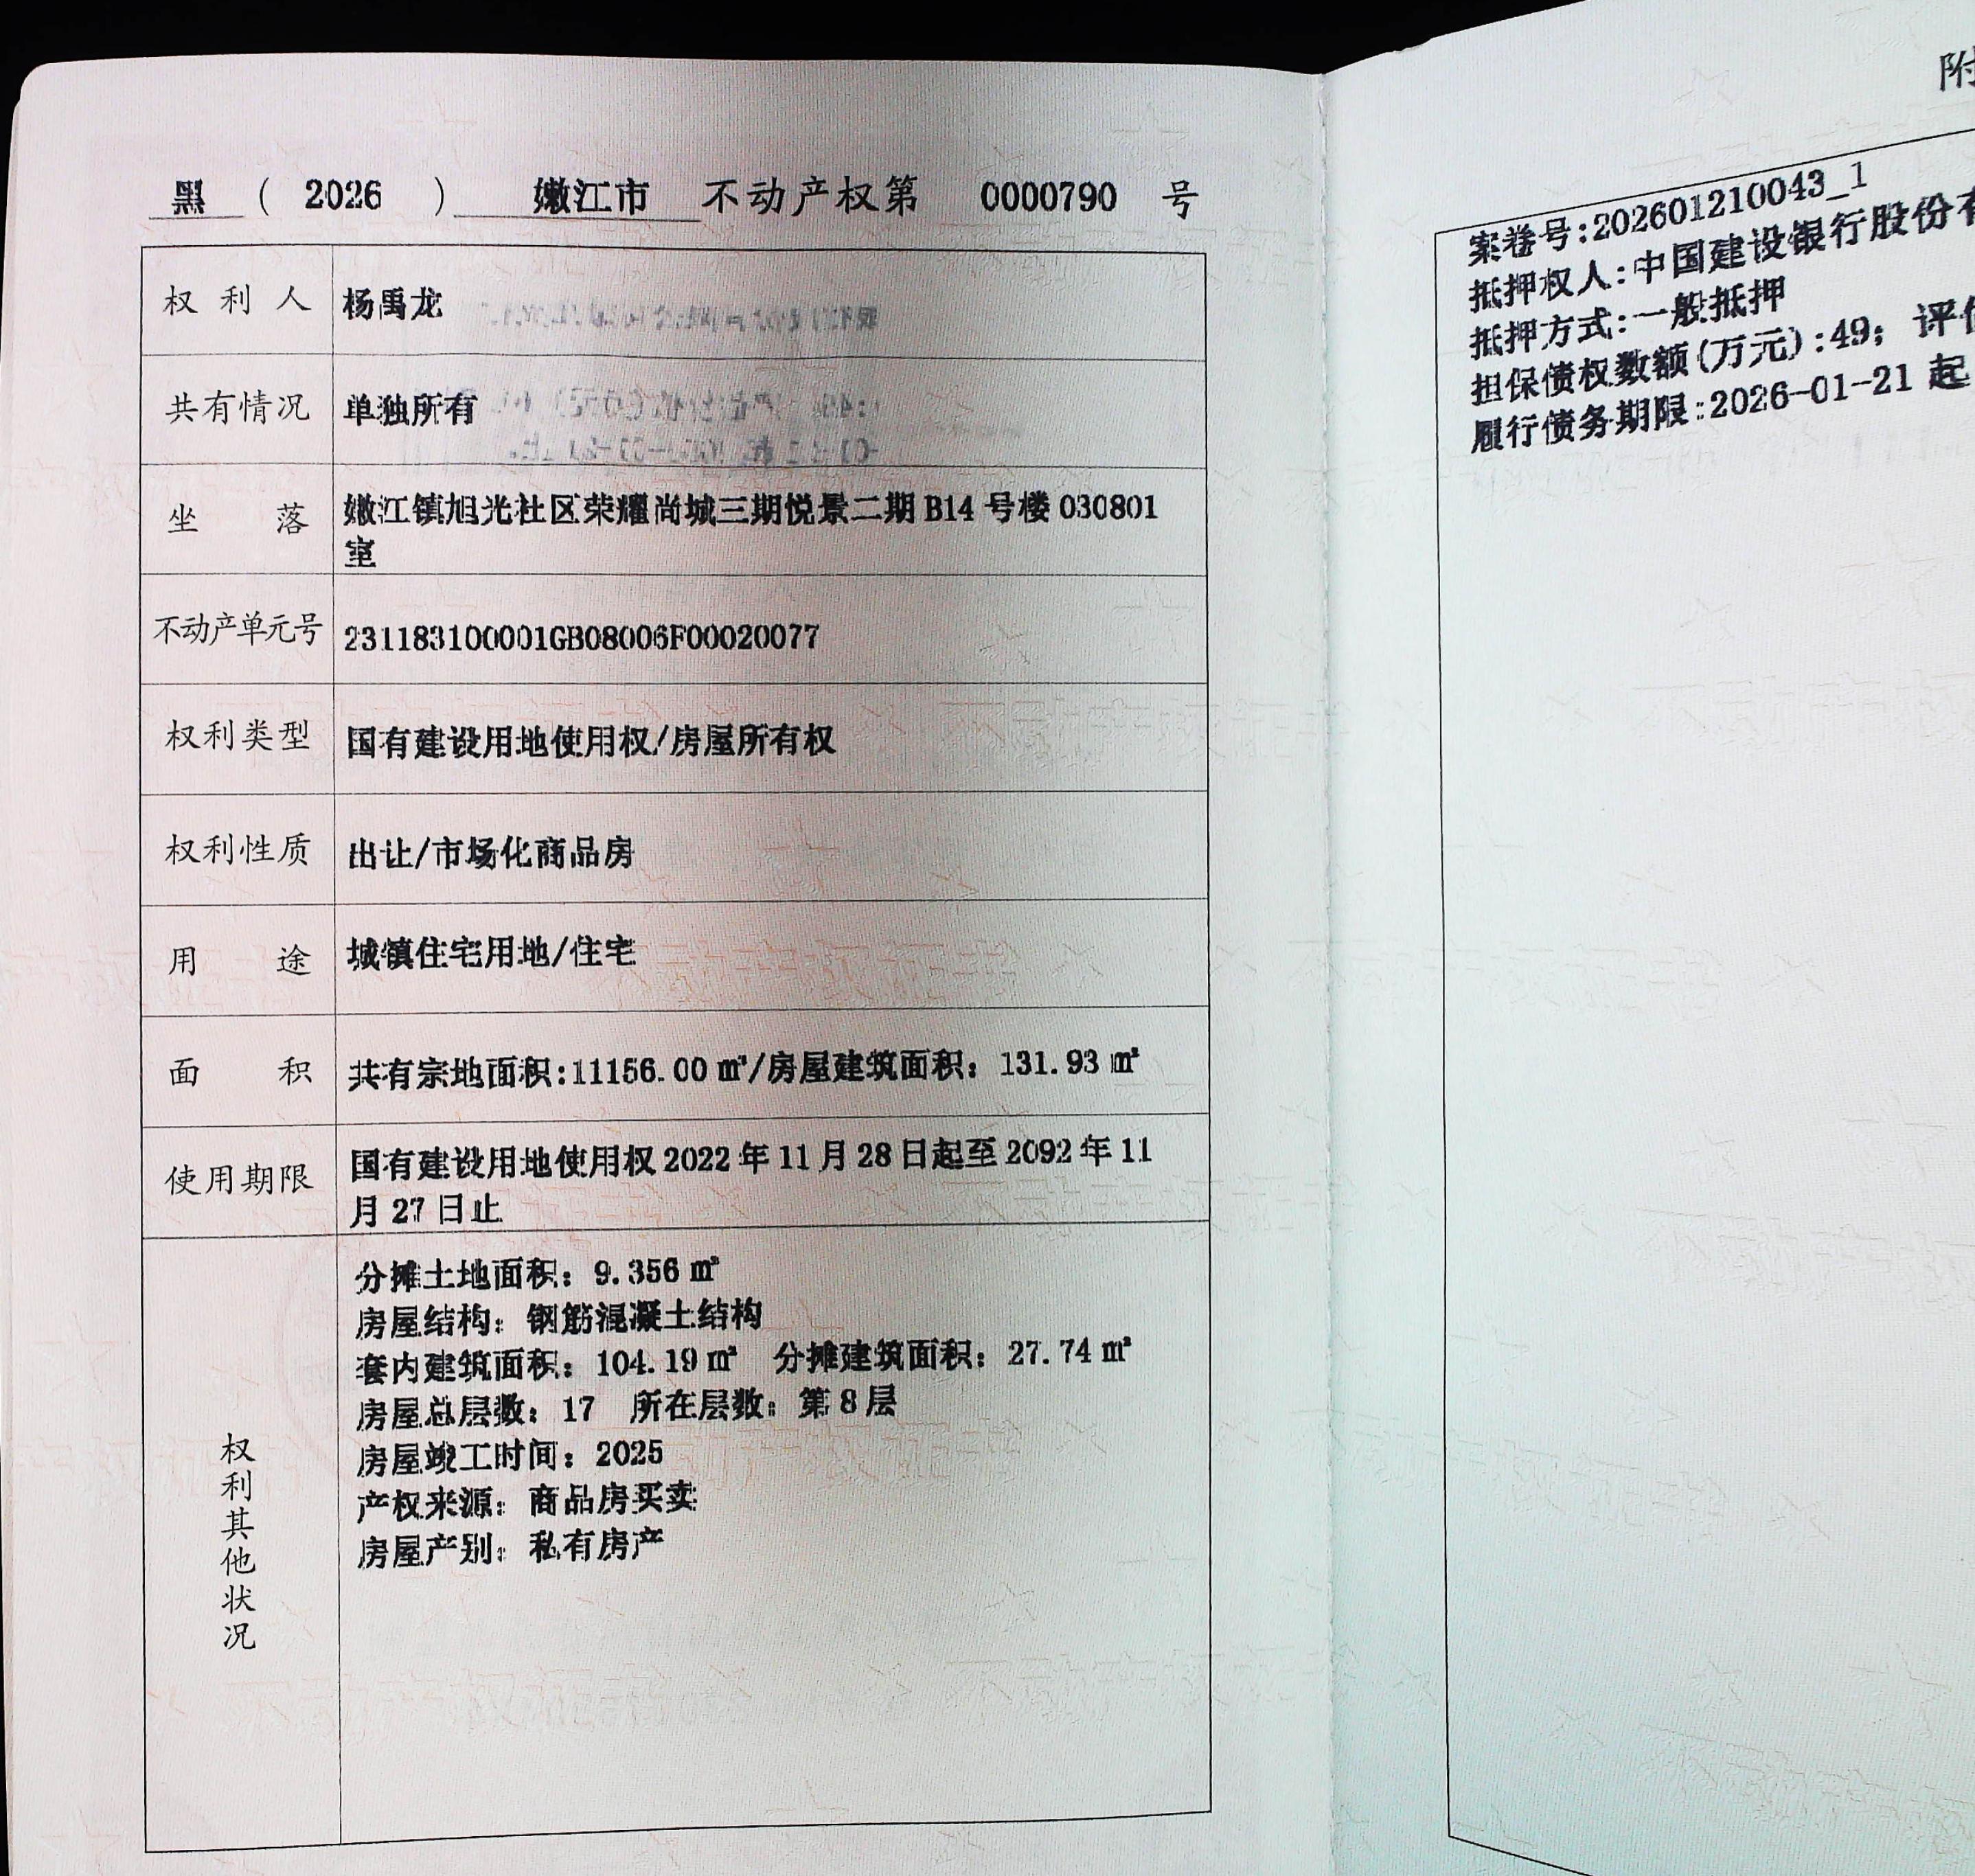 黑 ( 2026 ) 嫩江市 不动产权第 0000790 号
权利人 杨禹龙
共有情况 单独所有
坐落 嫩江镇旭光社区荣耀尚城三期悦景二期 B14 号楼 030801
室
不动产单元号 231183100001GB08006F00020077
权利类型 国有建设用地使用权/房屋所有权
权利性质 出让/市场化商品房
用途 城镇住宅用地/住宅
面积 共有宗地面积:11156.00 ㎡/房屋建筑面积：131.93 ㎡
使用期限 国有建设用地使用权 2022 年 11 月 28 日起至 2092 年 11
月 27 日止
权利其他状况
分摊土地面积：9.356 ㎡
房屋结构：钢筋混凝土结构
套内建筑面积：104.19 ㎡ 分摊建筑面积：27.74 ㎡
房屋总层数：17 所在层数：第 8 层
房屋竣工时间：2025
产权来源：商品房买卖
房屋产别：私有房产
附
案卷号:202601210043_1
抵押权人:中国建设银行股份有
抵押方式:一般抵押
担保债权数额(万元):49; 评估
履行债务期限:2026-01-21 起